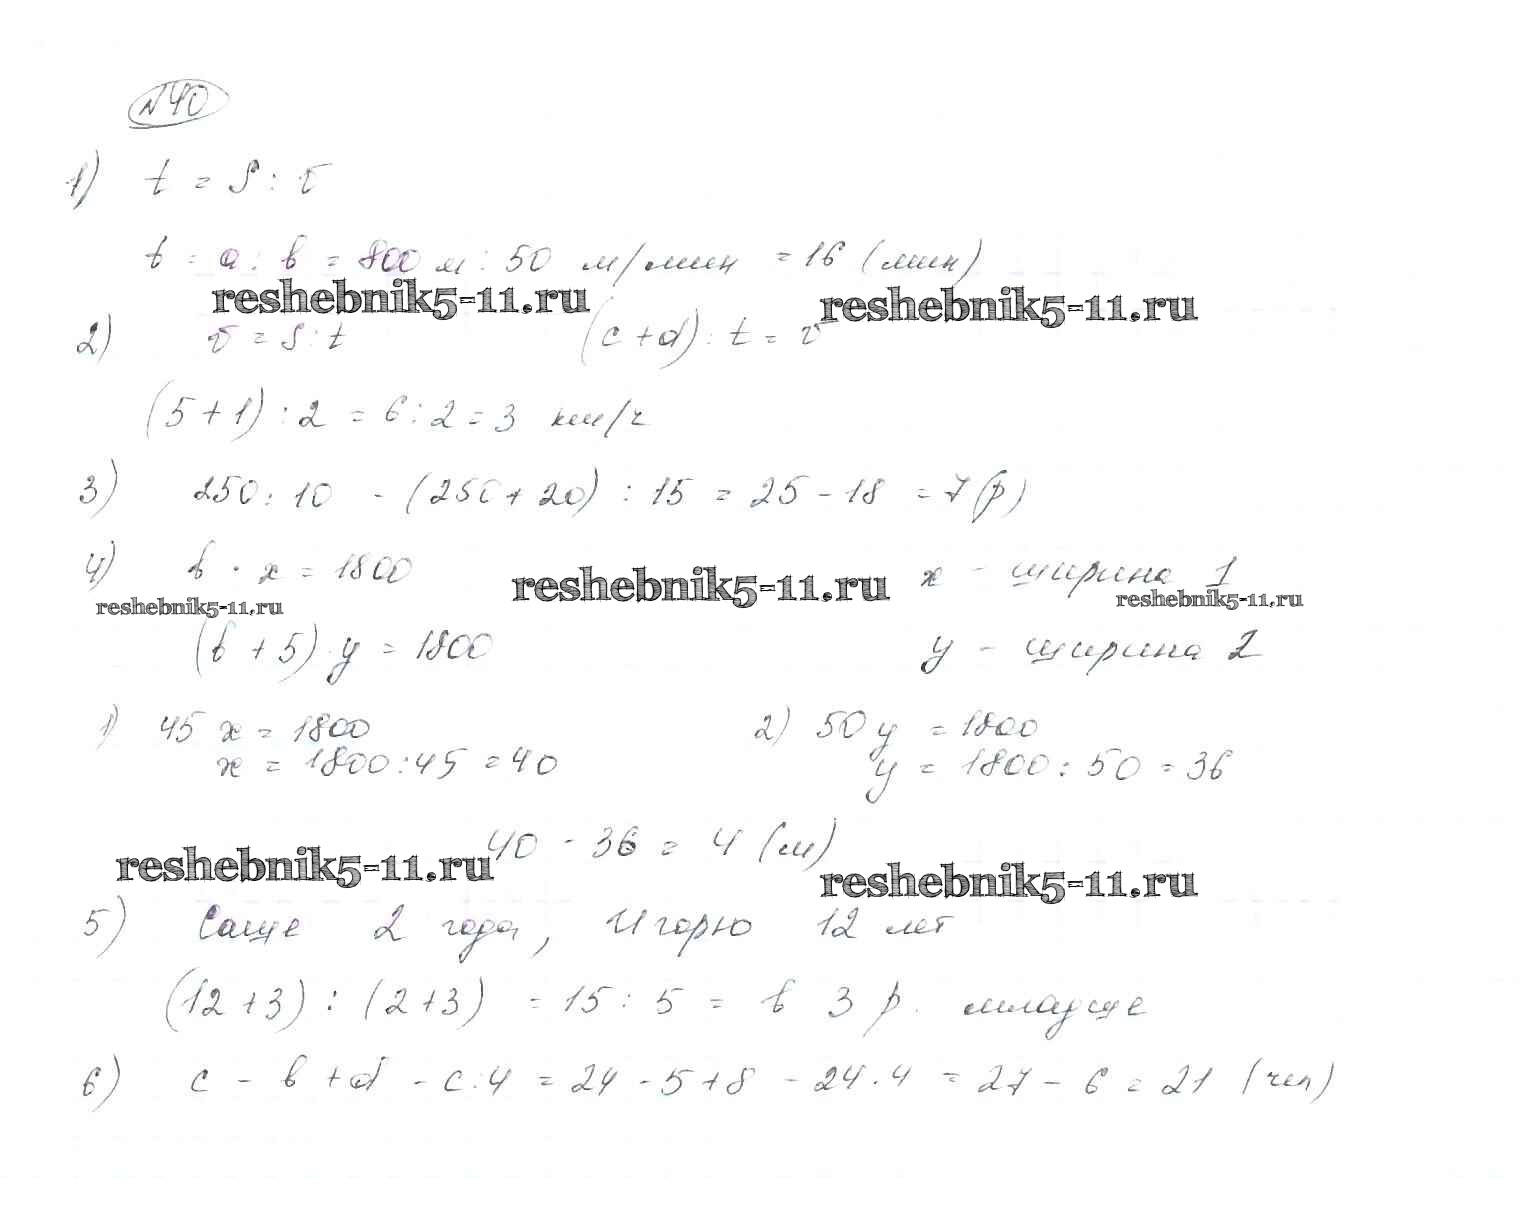 №40
1) t = S : v
t = a : b = 800 м : 50 м/мин = 16 (мин)
reshebnik5-11.ru reshebnik5-11.ru
2) v = S : t (c + d) : t = v
(5 + 1) : 2 = 6 : 2 = 3 км/ч
3) 250 : 10 - (250 + 20) : 15 = 25 - 18 = 7 (р)
4) b · x = 1800 reshebnik5-11.ru x - ширина 1
reshebnik5-11.ru reshebnik5-11.ru
(b + 5) · y = 1800 y - ширина 2
1) 45 x = 1800 2) 50 y = 1800
x = 1800 : 45 = 40 y = 1800 : 50 = 36
40 - 36 = 4 (м)
reshebnik5-11.ru reshebnik5-11.ru
5) Саше 2 года, Игорю 12 лет
(12 + 3) : (2 + 3) = 15 : 5 = в 3 р. младше
6) c - b + d - c : 4 = 24 - 5 + 8 - 24 : 4 = 27 - 6 = 21 (чел)